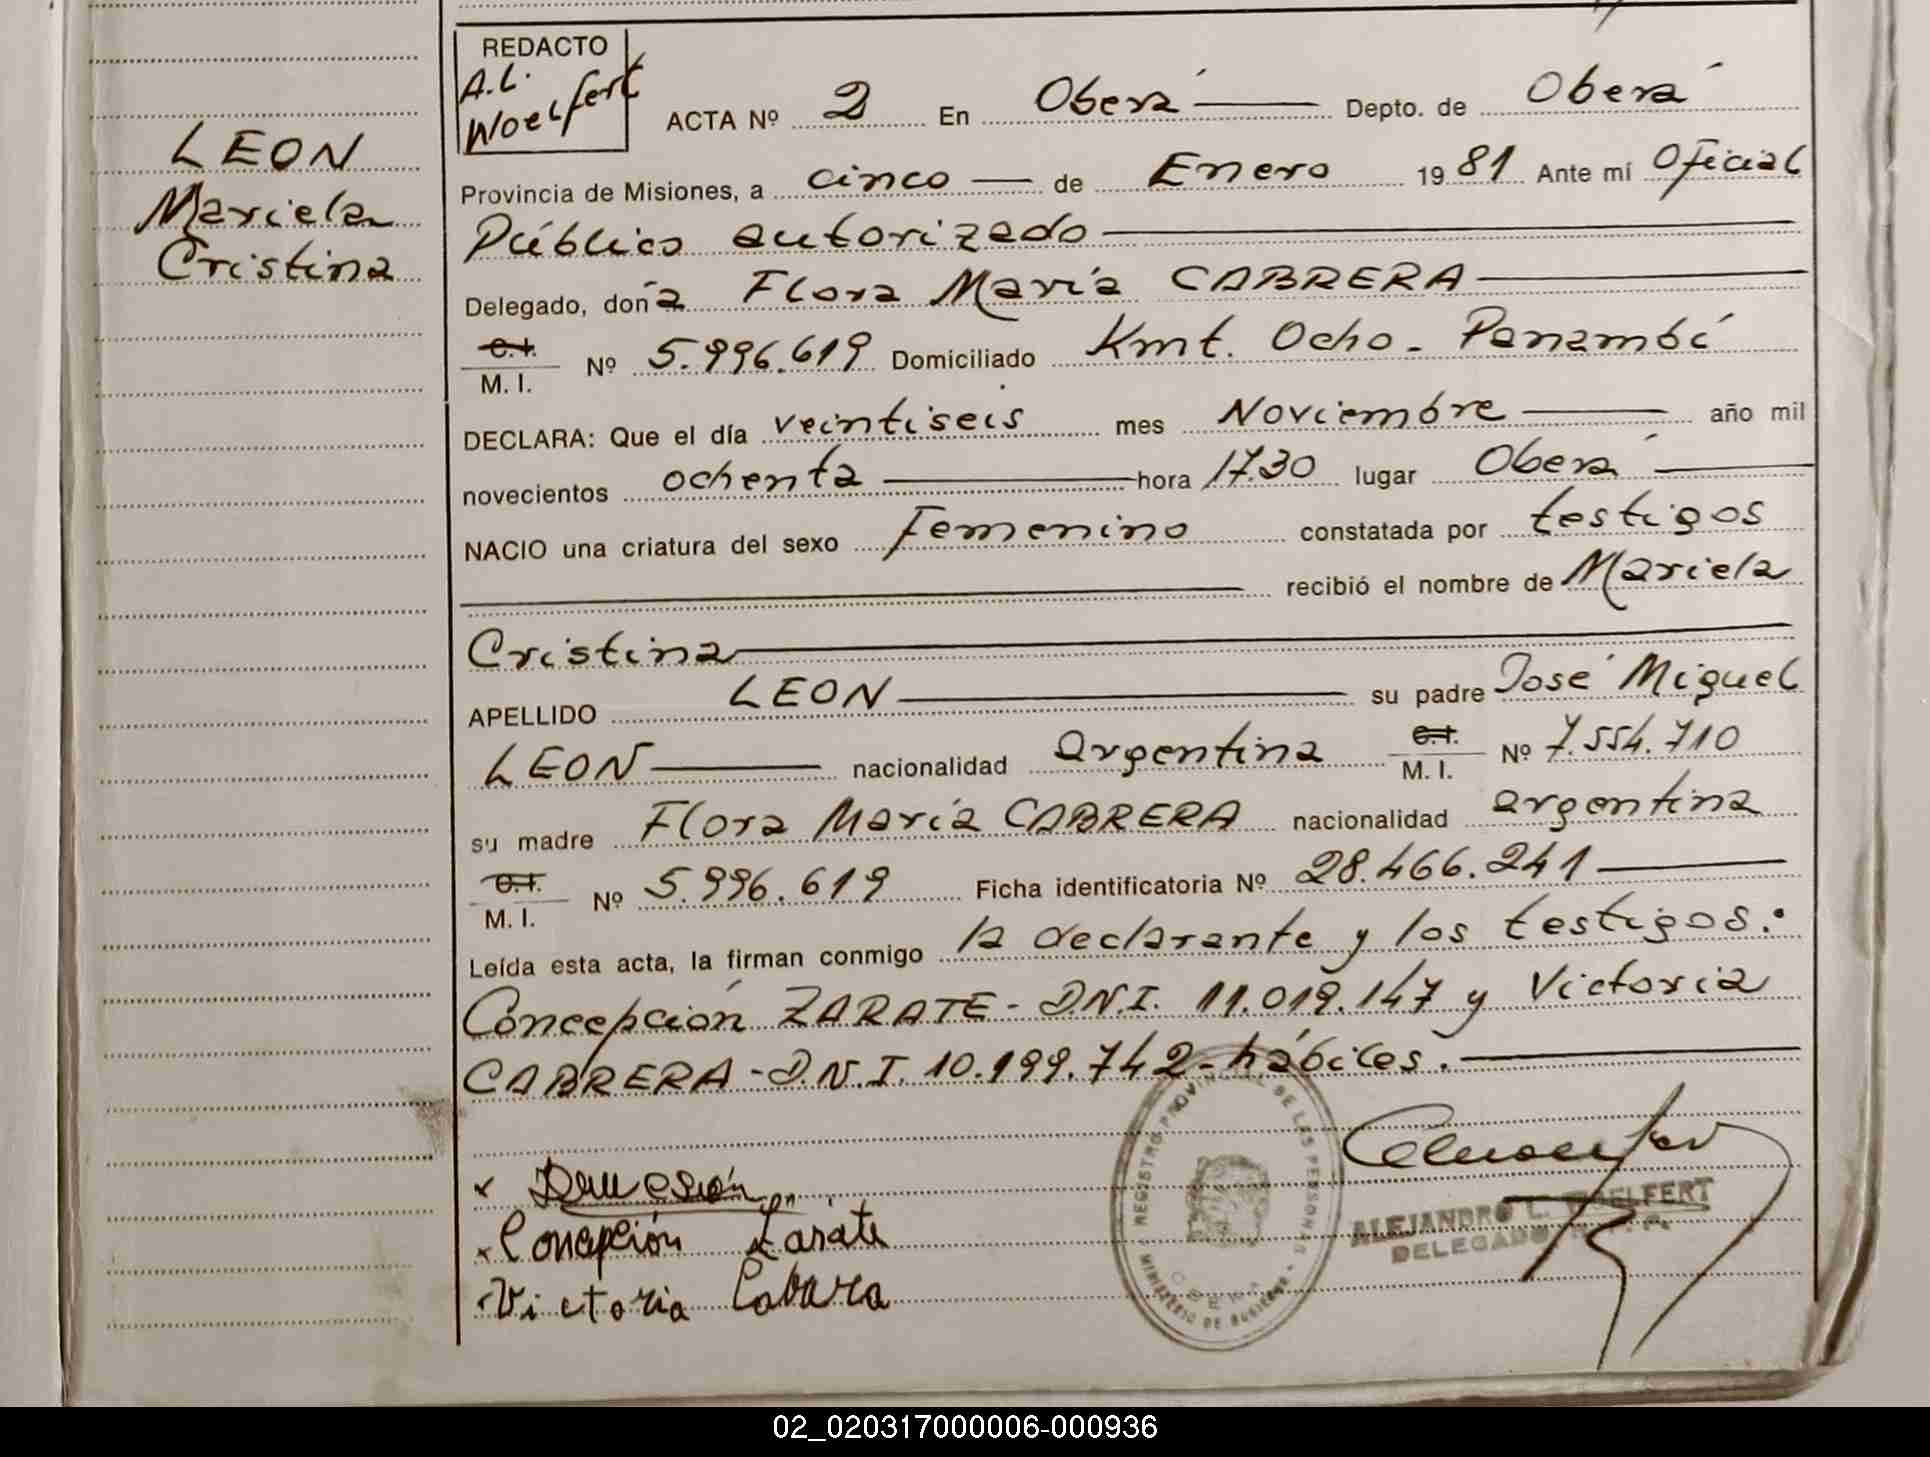 REDACTO
A.L.
Woelfert
LEON
Mariela
Cristina
ACTA Nº 2 En Oberá Depto. de Oberá
Provincia de Misiones, a cinco de Enero 1981 Ante mí Oficial
Público autorizado
Delegado, doña Flora María CABRERA
C.I.
M. I. Nº 5.996.619 Domiciliado Kmt. Ocho - Panambí
DECLARA: Que el día veintiseis mes Noviembre año mil
novecientos ochenta hora 17.30 lugar Oberá
NACIO una criatura del sexo Femenino constatada por testigos
recibió el nombre de Mariela
Cristina
APELLIDO LEON su padre José Miguel
LEON nacionalidad argentina C.I. M. I. Nº 7.554.710
su madre Flora María CABRERA nacionalidad argentina
C.I.
M. I. Nº 5.996.619 Ficha identificatoria Nº 28.466.241
Leída esta acta, la firman conmigo la declarante y los testigos:
Concepción ZARATE - D.N.I. 11.019.147 y Victoria
CABRERA - D.N.I. 10.199.742 - hábiles.
REGISTRO PROVINCIAL DE LAS PERSONAS
MINISTERIO DE GOBIERNO
OBERA
ALEJANDRO L. WOELFERT
DELEGADO
Concepción Zarate
Victoria Cabara
02_020317000006-000936